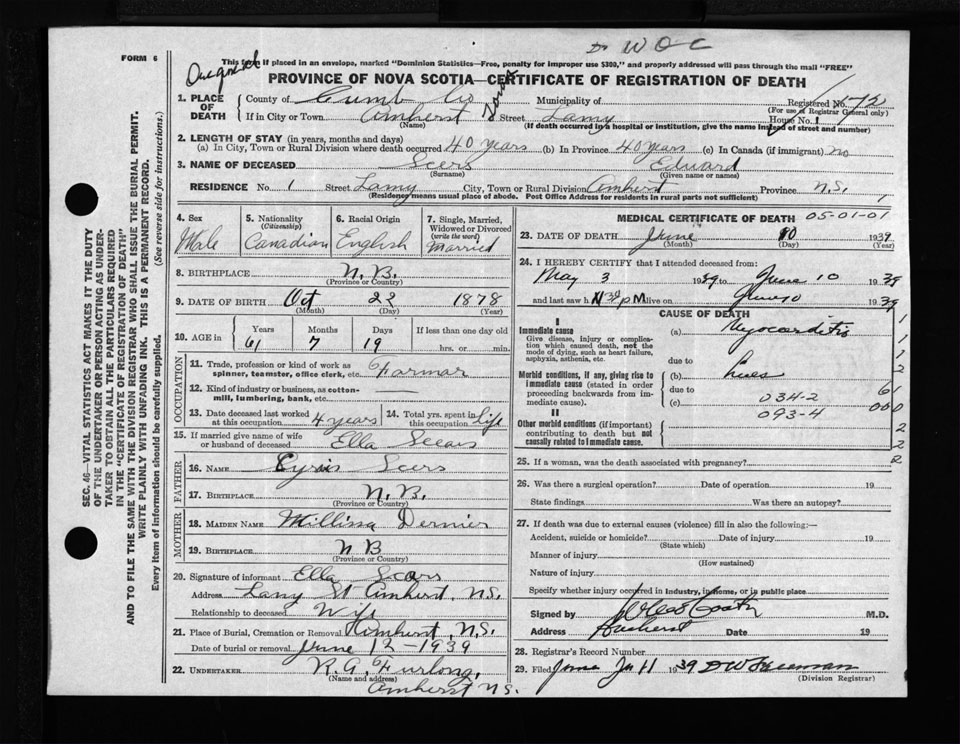 Dr W O C
FORM 6
This form if placed in an envelope, marked "Dominion Statistics—Free, penalty for improper use $300," and properly addressed will pass through the mail "FREE"
PROVINCE OF NOVA SCOTIA—CERTIFICATE OF REGISTRATION OF DEATH
1. PLACE OF DEATH County of Cumb Co Municipality of Registered No. 172
(For use of Registrar General only)
If in City or Town Amherst Street Lamy House No. 1
(Name) (If death occurred in a hospital or institution, give the name instead of street and number)
2. LENGTH OF STAY (in years, months and days)
(a) In City, Town or Rural Division where death occurred 40 years (b) In Province 40 years (c) In Canada (if immigrant) no
3. NAME OF DECEASED Seers Edward
(Surname) (Given name or names)
RESIDENCE No. 1 Street Lamy City, Town or Rural Division Amherst Province N.S.
(Residency means usual place of abode. Post Office Address for residents in rural parts not sufficient) 1
4. Sex Male
5. Nationality (Citizenship) Canadian
6. Racial Origin English
7. Single, Married, Widowed or Divorced (write the word) Married
8. BIRTHPLACE N.B.
(Province or Country)
9. DATE OF BIRTH Oct 22 1878
(Month) (Day) (Year)
10. AGE in Years Months Days If less than one day old
61 7 19 hrs. or min.
OCCUPATION
11. Trade, profession or kind of work as spinner, teamster, office clerk, etc. Farmar
12. Kind of industry or business, as cotton-mill, lumbering, bank, etc.
13. Date deceased last worked at this occupation 4 years 14. Total yrs. spent in this occupation life
15. If married give name of wife or husband of deceased Ella Seears
FATHER
16. NAME Cyris Seers
17. BIRTHPLACE N.B.
(Province or Country)
MOTHER
18. MAIDEN NAME Millissa Dernier
19. BIRTHPLACE N B
(Province or Country)
20. Signature of informant Ella Seers
Address Lamy St Amherst, N.S.
Relationship to deceased Wife
21. Place of Burial, Cremation or Removal Amherst, N.S.
Date of burial or removal June 12-1939
22. UNDERTAKER R.G. Furlong,
(Name and address)
Amherst N.S.
MEDICAL CERTIFICATE OF DEATH 05-01-01
23. DATE OF DEATH June 10 1939
(Month) (Day) (Year)
24. I HEREBY CERTIFY that I attended deceased from:
May 3 1939 to June 10 1939
and last saw h alive on June 10 1939
CAUSE OF DEATH
I
Immediate cause (a) Myocarditis
Give disease, injury or complication which caused death, not the mode of dying, such as heart failure, asphyxia, asthenia, etc.
due to
Morbid conditions, if any, giving rise to immediate cause (stated in order proceeding backwards from immediate cause). (b) lues
due to
(c) 034-2
II 093-4
Other morbid conditions (if important) contributing to death but not causally related to immediate cause.
1
1
1
2
61
000
2
2
2
25. If a woman, was the death associated with pregnancy?
26. Was there a surgical operation? Date of operation 19
State findings Was there an autopsy?
27. If death was due to external causes (violence) fill in also the following:—
Accident, suicide or homicide? Date of injury 19
(State which)
Manner of injury
(How sustained)
Nature of injury
Specify whether injury occurred in Industry, in home, or in public place
Signed by M.D.
Address Amherst Date 19
28. Registrar's Record Number
29. Filed June 11 1939 D W Freeman
(Division Registrar)
SEC. 46—VITAL STATISTICS ACT MAKES IT THE DUTY
OF THE UNDERTAKER OR PERSON ACTING AS UNDER-
TAKER TO OBTAIN ALL THE PARTICULARS REQUIRED
IN THE "CERTIFICATE OF REGISTRATION OF DEATH"
AND TO FILE THE SAME WITH THE DIVISION REGISTRAR WHO SHALL ISSUE THE BURIAL PERMIT.
WRITE PLAINLY WITH UNFADING INK. THIS IS A PERMANENT RECORD.
Every item of information should be carefully supplied. (See reverse side for instructions.)